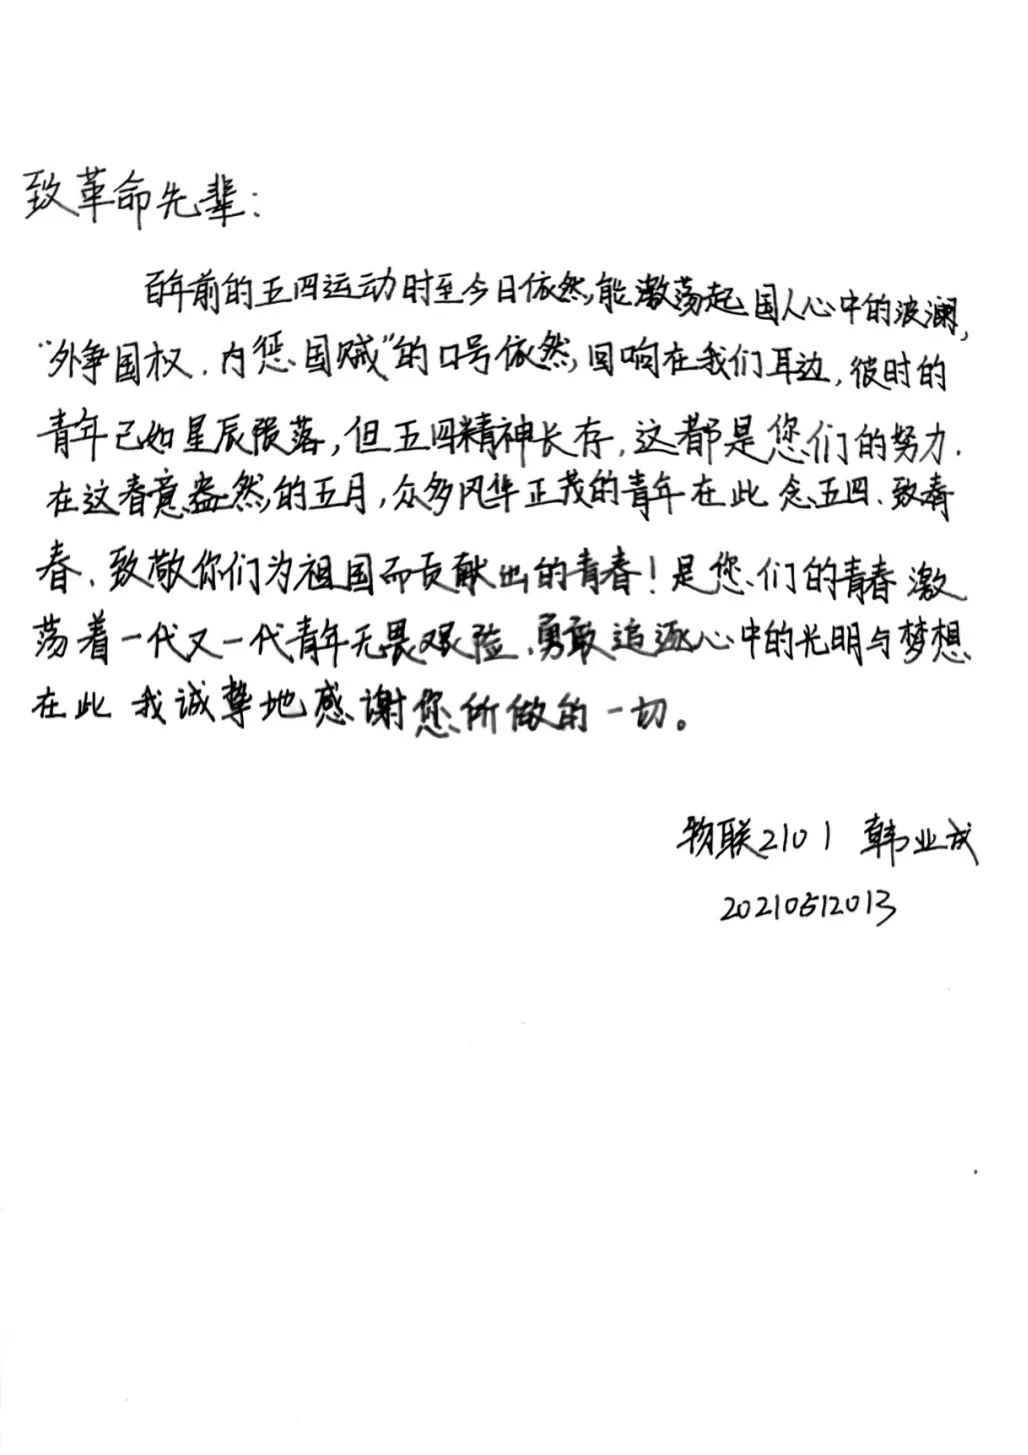 致革命先辈：
百年前的五四运动时至今日依然能激荡起国人心中的波澜，
“外争国权、内惩国贼”的口号依然回响在我们耳边，彼时的
青年已如星辰陨落，但五四精神长存，这都是您们的努力．
在这春意盎然的五月，众多风华正茂的青年在此 念五四、致青
春、致敬你们为祖国而贡献出的青春！是您们的青春激
荡着一代又一代青年无畏艰险、勇敢追逐心中的光明与梦想
在此 我诚挚地感谢您所做的一切。
物联2101 韩业成
20210512013